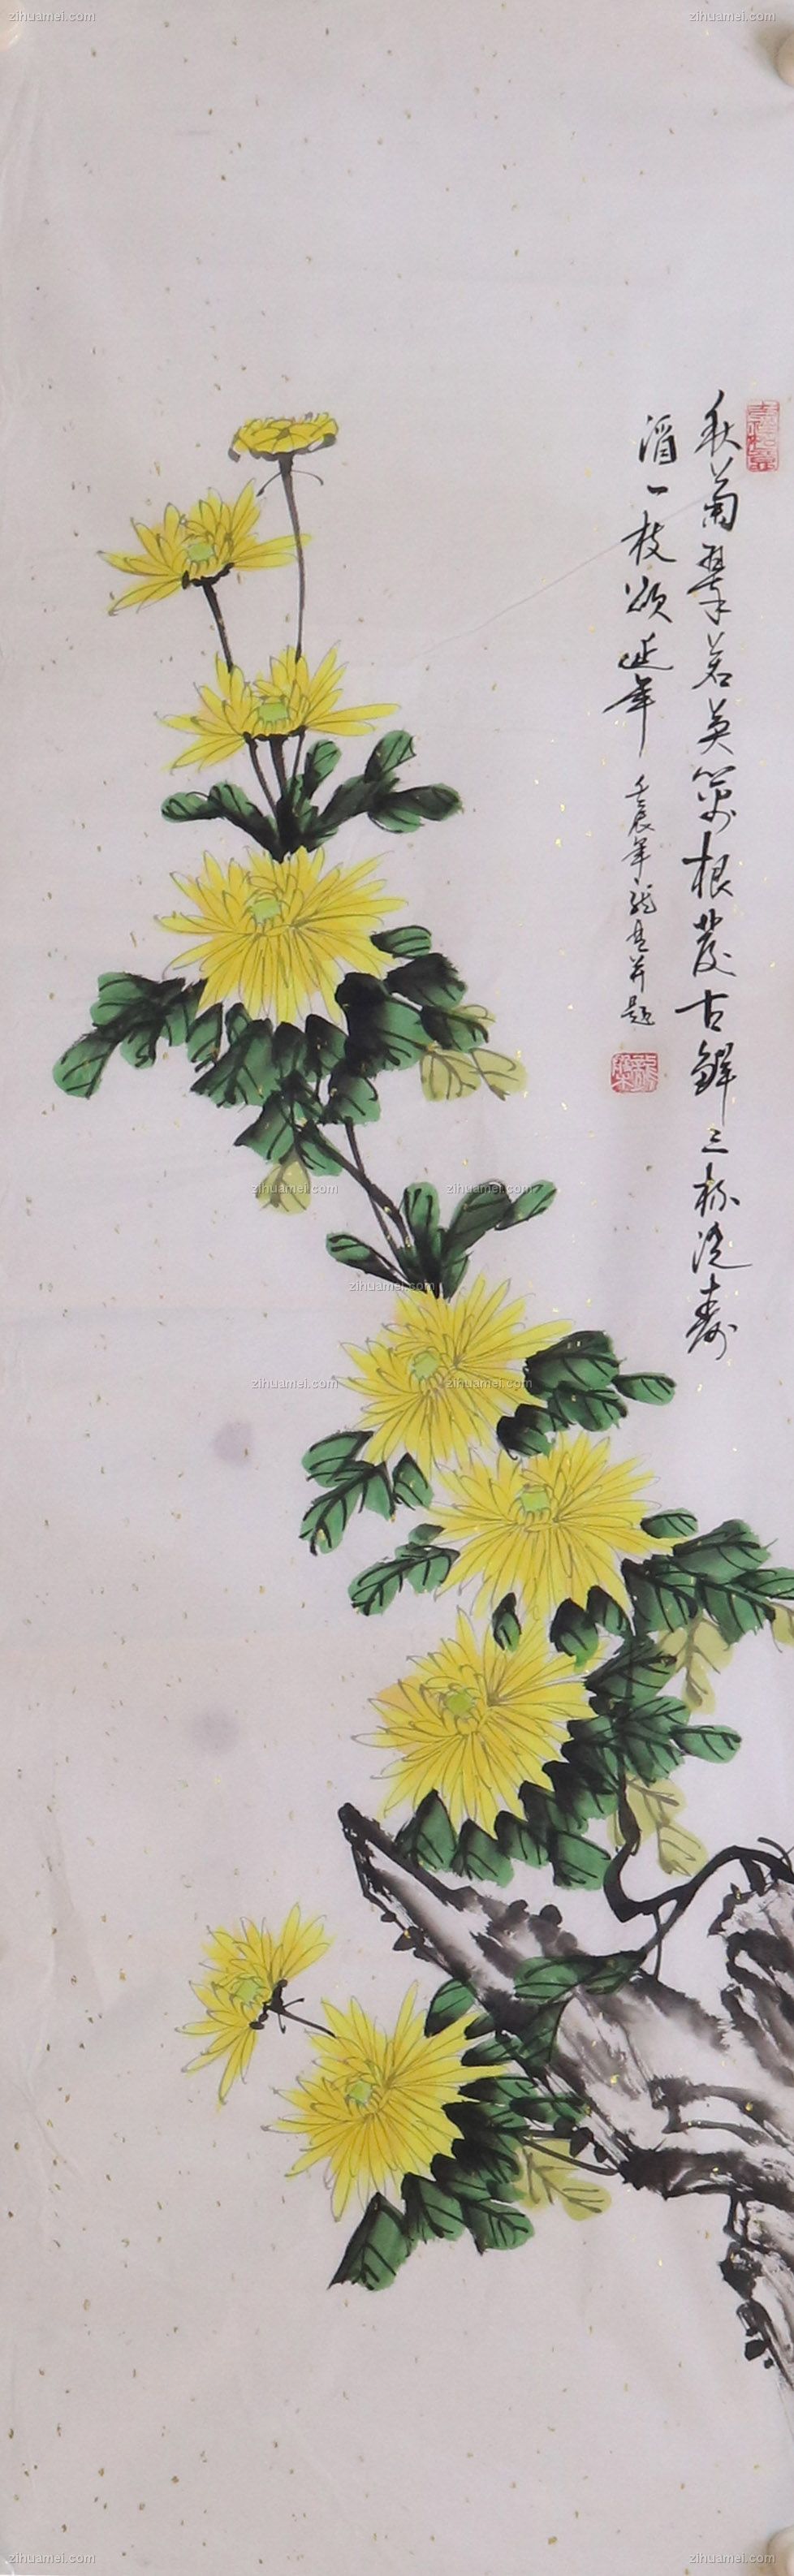 zihuamei.com zihuamei.com
秋菊若英根发古鲜三杯浇寿
酒一枝颂延年
壬辰年龙其并题
zihuamei.com zihuamei.com
zihuamei.com
zihuamei.com zihuamei.com
zihuamei.com zihuamei.com